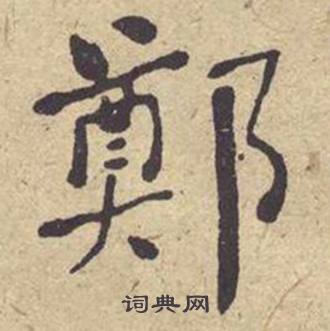 鄭
词典网